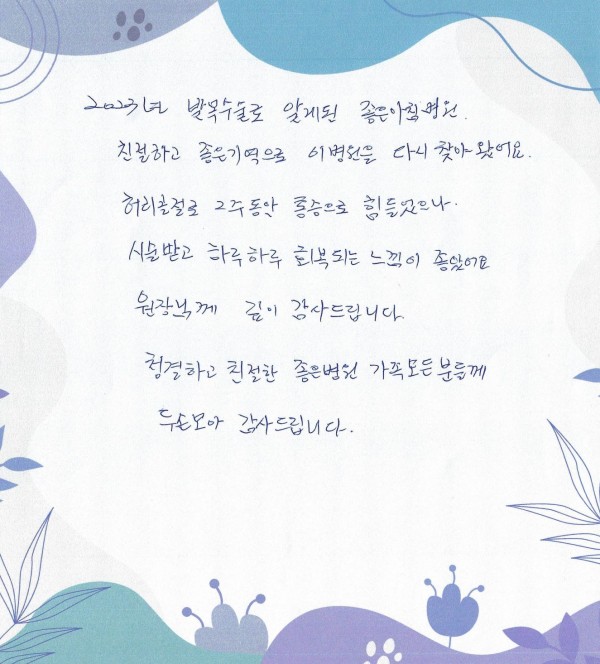 2023년 발목수술로 알게된 좋은아침병원.
친절하고 좋은기억으로 이병원을 다시 찾아 왔어요.
허리골절로 2주동안 통증으로 힘들었으나.
시술받고 하루하루 회복되는 느낌이 좋았어요
원장님께 깊이 감사드립니다.
청결하고 친절한 좋은병원 가족모든분들께
두손모아 감사드립니다.